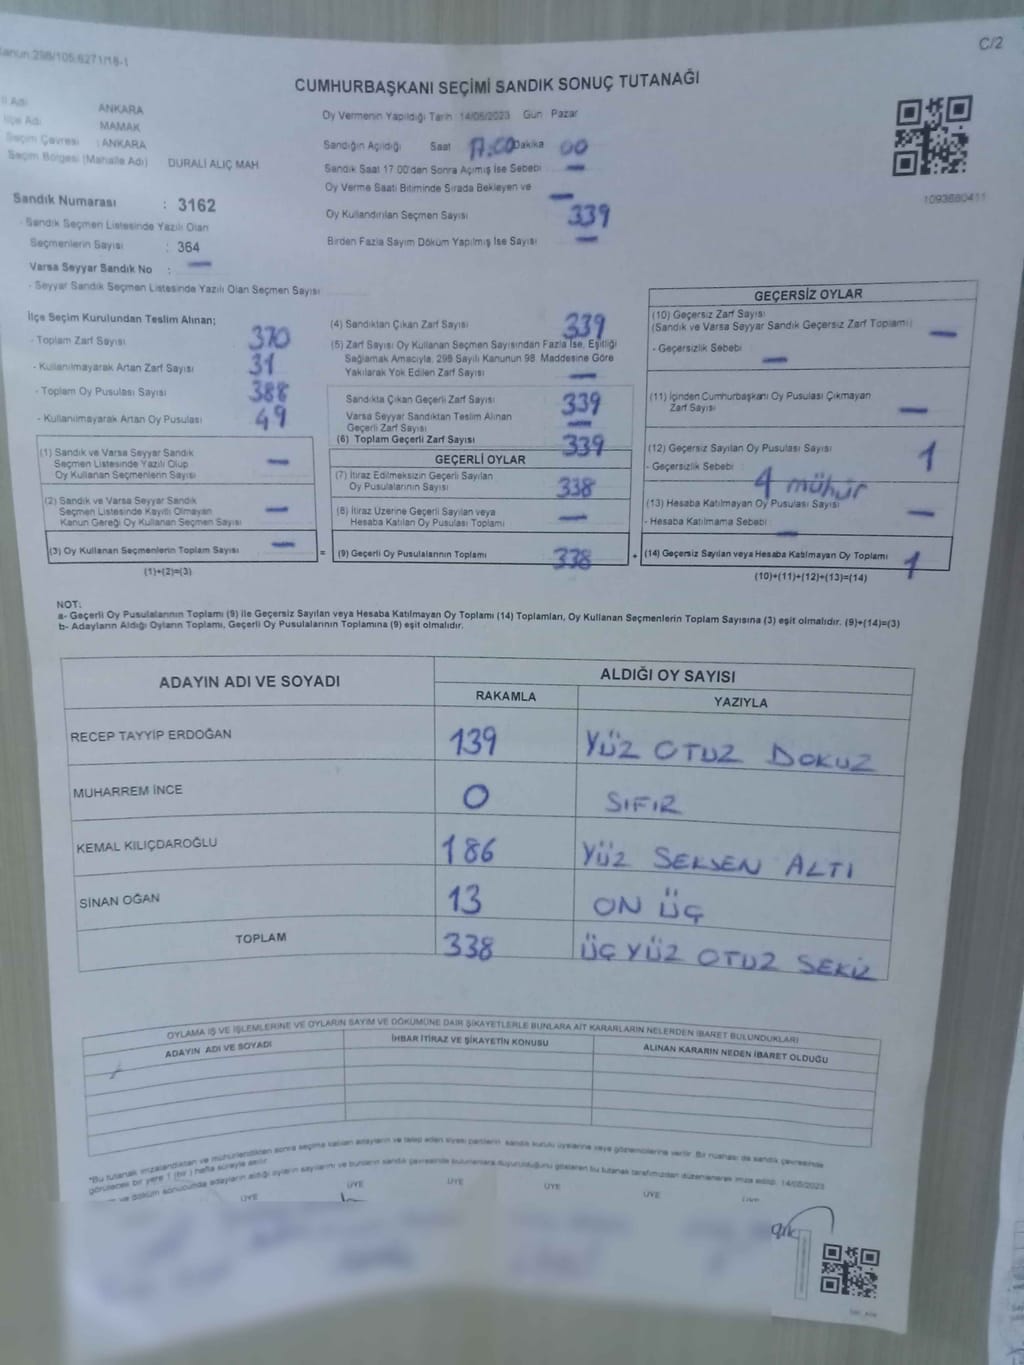 C/2
CUMHURBAŞKANI SEÇİMİ SANDIK SONUÇ TUTANAĞI
İl Adı ANKARA
İlçe Adı MAMAK
Seçim Çevresi : ANKARA
Seçim Bölgesi (Mahalle Adı) DURALİ ALIÇ MAH
Oy Vermenin Yapıldığı Tarih 14/05/2023 Gün Pazar
Sandığın Açıldığı Saat 17.00 Dakika 00
Sandık Saat 17.00'den Sonra Açılmış İse Sebebi —
Oy Verme Saati Bitiminde Sırada Bekleyen ve —
Oy Kullandırılan Seçmen Sayısı 339
Birden Fazla Sayım Döküm Yapılmış İse Sayısı —
1093680411
Sandık Numarası : 3162
- Sandık Seçmen Listesinde Yazılı Olan
Seçmenlerin Sayısı : 364
Varsa Seyyar Sandık No : —
- Seyyar Sandık Seçmen Listesinde Yazılı Olan Seçmen Sayısı
İlçe Seçim Kurulundan Teslim Alınan;
- Toplam Zarf Sayısı 370
- Kullanılmayarak Artan Zarf Sayısı 31
- Toplam Oy Pusulası Sayısı 388
- Kullanılmayarak Artan Oy Pusulası 49
(1) Sandık ve Varsa Seyyar Sandık
Seçmen Listesinde Yazılı Olup
Oy Kullanan Seçmenlerin Sayısı —
(2) Sandık ve Varsa Seyyar Sandık
Seçmen Listesinde Kayıtlı Olmayan
Kanun Gereği Oy Kullanan Seçmen Sayısı —
(3) Oy Kullanan Seçmenlerin Toplam Sayısı —
(1)+(2)=(3)
(4) Sandıktan Çıkan Zarf Sayısı 339
(5) Zarf Sayısı Oy Kullanan Seçmen Sayısından Fazla İse, Eşitliği
Sağlamak Amacıyla, 298 Sayılı Kanunun 98. Maddesine Göre
Yakılarak Yok Edilen Zarf Sayısı —
Sandıkta Çıkan Geçerli Zarf Sayısı 339
Varsa Seyyar Sandıktan Teslim Alınan
Geçerli Zarf Sayısı —
(6) Toplam Geçerli Zarf Sayısı 339
GEÇERLİ OYLAR
(7) İtiraz Edilmeksizin Geçerli Sayılan
Oy Pusulalarının Sayısı 338
(8) İtiraz Üzerine Geçerli Sayılan veya
Hesaba Katılan Oy Pusulası Toplamı —
= (9) Geçerli Oy Pusulalarının Toplamı 338 +
GEÇERSİZ OYLAR
(10) Geçersiz Zarf Sayısı
(Sandık ve Varsa Seyyar Sandık Geçersiz Zarf Toplamı) —
- Geçersizlik Sebebi —
(11) İçinden Cumhurbaşkanı Oy Pusulası Çıkmayan
Zarf Sayısı —
(12) Geçersiz Sayılan Oy Pusulası Sayısı 1
- Geçersizlik Sebebi : 4 mühür
(13) Hesaba Katılmayan Oy Pusulası Sayısı —
- Hesaba Katılmama Sebebi —
(14) Geçersiz Sayılan veya Hesaba Katılmayan Oy Toplamı 1
(10)+(11)+(12)+(13)=(14)
NOT:
a- Geçerli Oy Pusulalarının Toplamı (9) ile Geçersiz Sayılan veya Hesaba Katılmayan Oy Toplamı (14) Toplamları, Oy Kullanan Seçmenlerin Toplam Sayısına (3) eşit olmalıdır. (9)+(14)=(3)
b- Adayların Aldığı Oyların Toplamı, Geçerli Oy Pusulalarının Toplamına (9) eşit olmalıdır.
ADAYIN ADI VE SOYADI ALDIĞI OY SAYISI
RAKAMLA YAZIYLA
RECEP TAYYİP ERDOĞAN 139 YÜZ OTUZ DOKUZ
MUHARREM İNCE 0 SIFIR
KEMAL KILIÇDAROĞLU 186 YÜZ SEKSEN ALTI
SİNAN OĞAN 13 ON ÜÇ
TOPLAM 338 ÜÇ YÜZ OTUZ SEKİZ
OYLAMA İŞ VE İŞLEMLERİNE VE OYLARIN SAYIM VE DÖKÜMÜNE DAİR ŞİKAYETLERLE BUNLARA AİT KARARLARIN NELERDEN İBARET BULUNDUKLARI
ADAYIN ADI VE SOYADI İHBAR İTİRAZ VE ŞİKAYETİN KONUSU ALINAN KARARIN NEDEN İBARET OLDUĞU
*Bu tutanak imzalandıktan ve mühürlendikten sonra seçime katılan adayların ve talep eden siyasi partilerin sandık kurulu üyelerine veya gözlemcilerine verilir. Bir nüshası da sandık çevresinde
görülecek bir yere 1 (bir) hafta süreyle asılır.
ve döküm sonucunda adayların aldığı oyların sayılarını ve bunların sandık çevresinde bulunanlara duyurulduğunu gösteren bu tutanak tarafımızdan düzenlenerek imza edildi. 14/05/2023
ÜYE ÜYE ÜYE ÜYE ÜYE